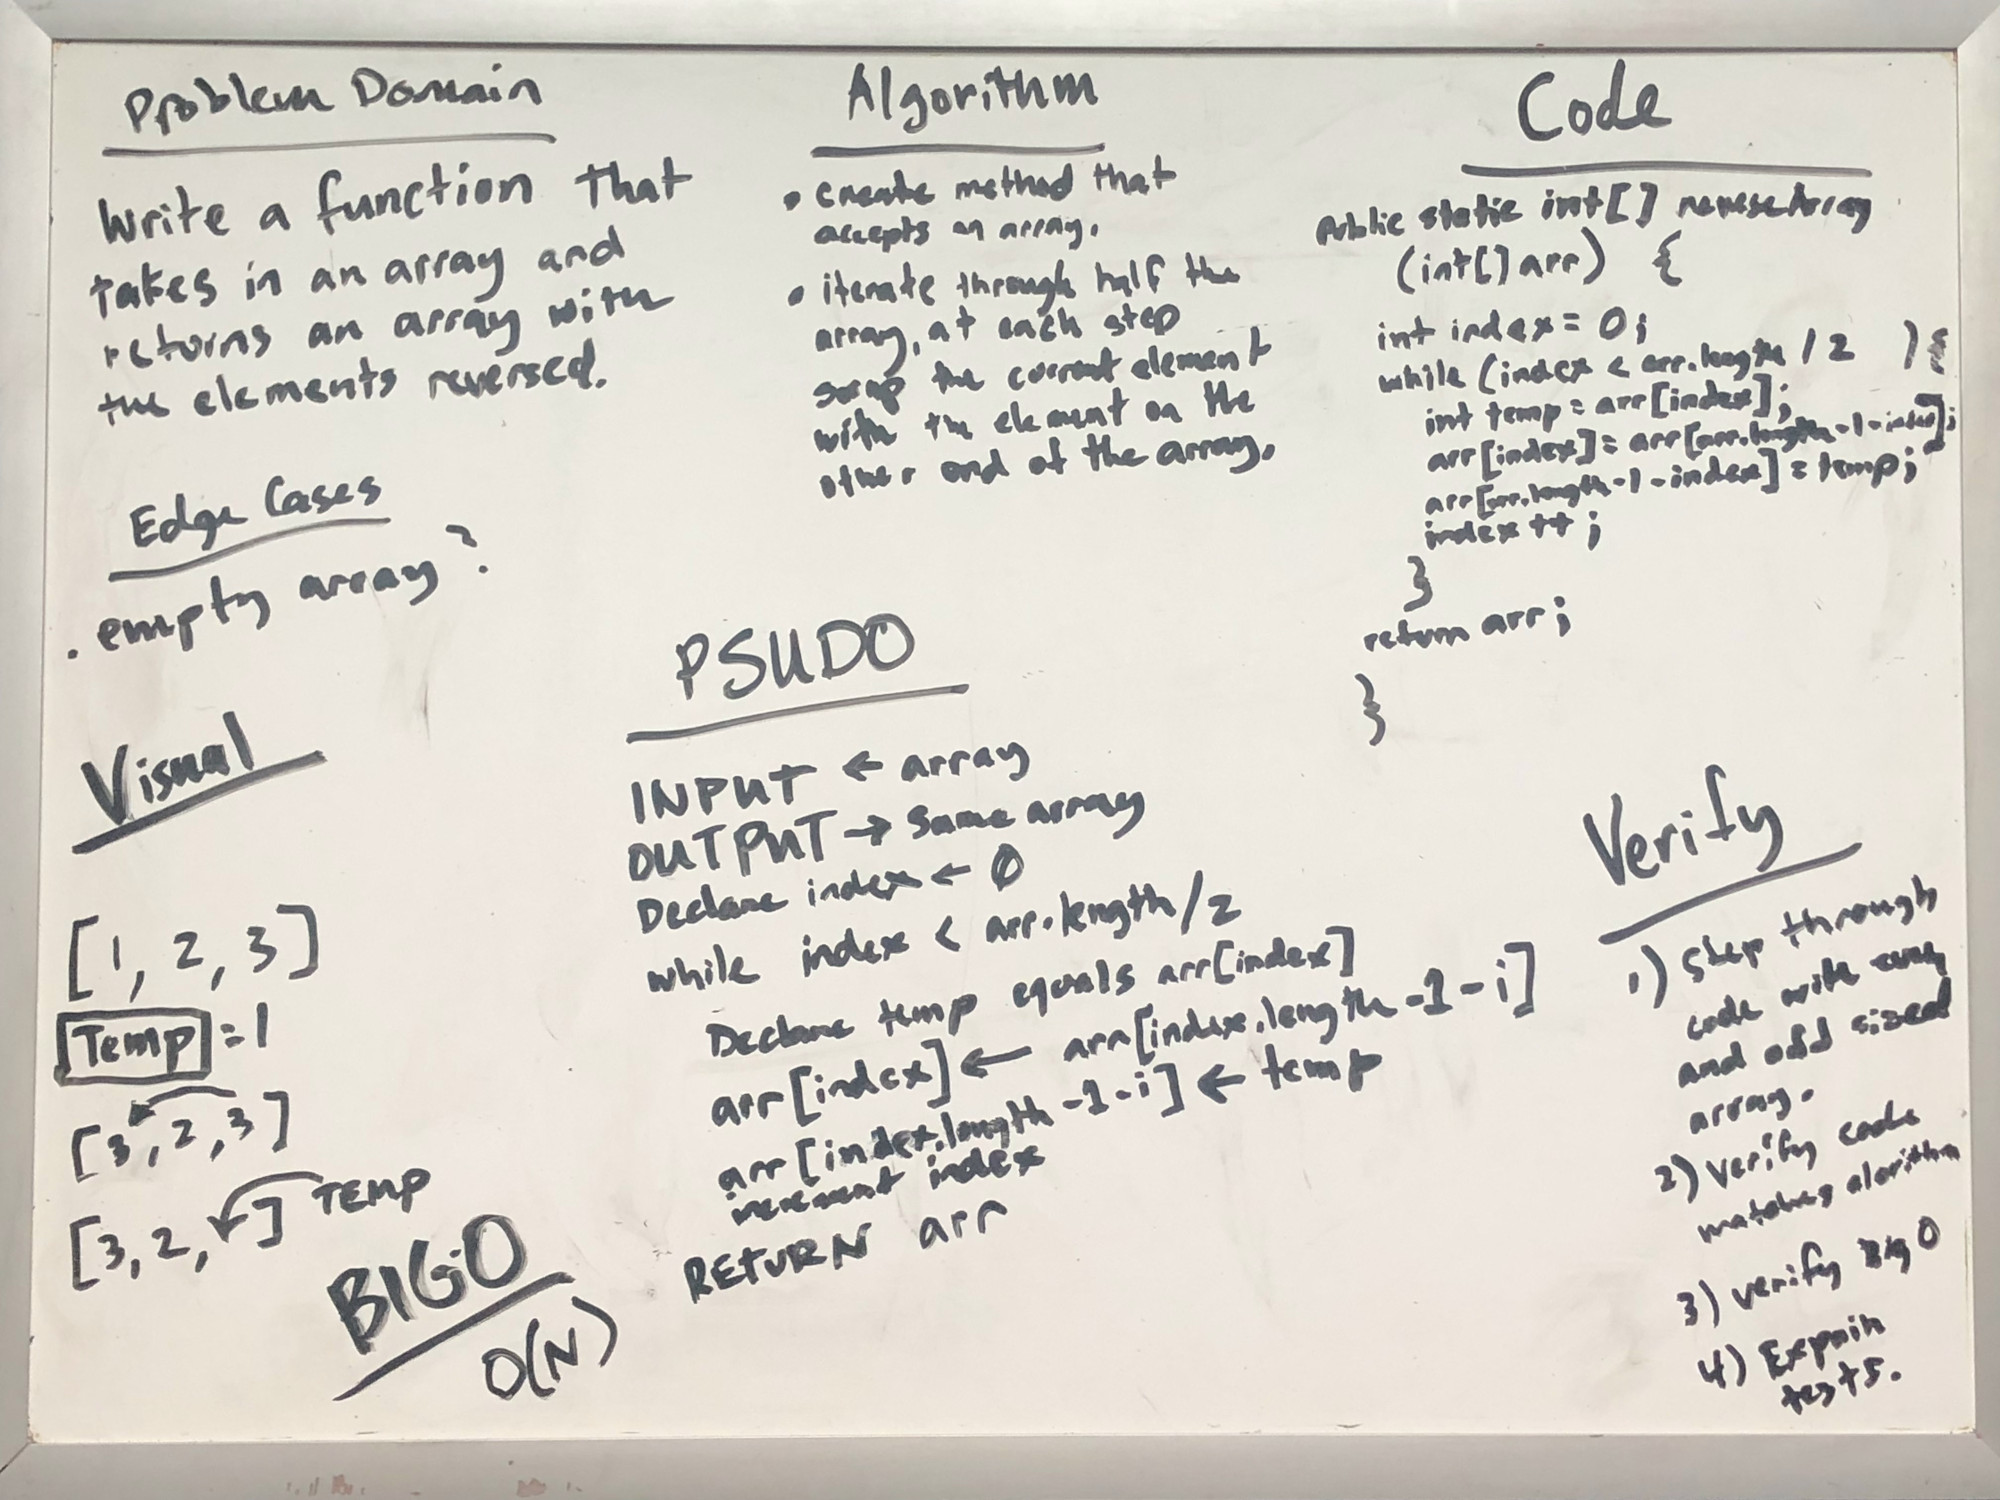 Problem Domain
Write a function that
takes in an array and
returns an array with
the elements reversed.
Edge Cases
. empty array?
Visual
[1, 2, 3]
Temp = 1
[3, 2, 3]
[3, 2, ] TEMP
BIGO
O(N)
Algorithm
• create method that
accepts an array.
• iterate through half the
array, at each step
swap the current element
with the element on the
other end of the array.
PSUDO
INPUT ← array
OUTPUT → Same array
Declare index ← 0
while index < arr.length/2
Declare temp equals arr[index]
arr[index] ← arr[index.length -1 - i]
arr[index.length -1 - i] ← temp
increment index
RETURN arr
Code
Public static int[] reverseArray
(int[] arr) {
int index = 0;
while (index < arr.length / 2 ) {
int temp = arr[index];
arr[index] = arr[arr.length -1 - index];
arr[arr.length -1 - index] = temp;
index ++ ;
}
return arr;
}
Verify
1) Step through
code with even
and odd sized
array.
2) verify code
matches alorithm
3) verify Big O
4) Expain
tests.